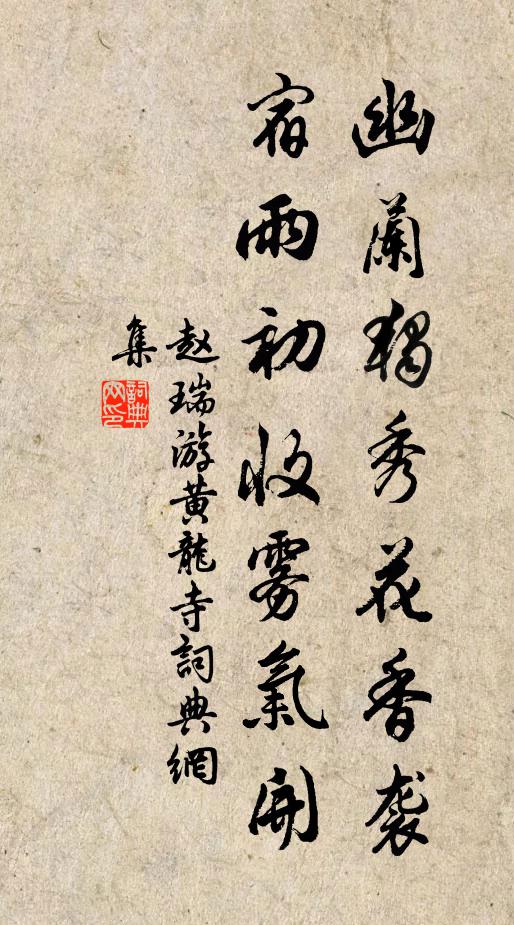 幽蘭獨秀花香袭
宿雨初收雾氣開
赵瑞游黄龍寺詞典網
集
詞典网印